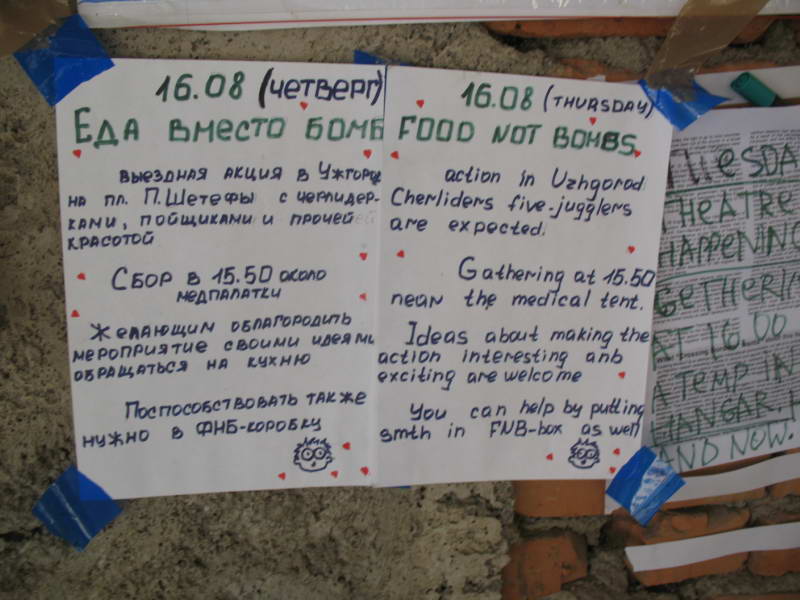 16.08 (ЧЕТВЕРГ)
ЕДА ВМЕСТО БОМБ
ВЫЕЗДНАЯ АКЦИЯ В УЖГОРОД
НА ПЛ. П.ШЕТЕФЫ С ЧЕРЛИДЕР-
КАМИ, ПОЙЩИКАМИ И ПРОЧЕЙ
КРАСОТОЙ
СБОР В 15.50 ОКОЛО
МЕДПАЛАТКИ
ЖЕЛАЮЩИМ ОБЛАГОРОДИТЬ
МЕРОПРИЯТИЕ СВОИМИ ИДЕЯМИ
ОБРАЩАТЬСЯ НА КУХНЮ
ПОСПОСОБСТВОВАТЬ ТАКЖЕ
НУЖНО В ФНБ-КОРОБКУ
16.08 (THURSDAY)
FOOD NOT BOMBS
action in Uzhgorod
Cherliders five-jugglers
are expected.
Gathering at 15.50
near the medical tent.
Ideas about making the
action interesting and
exciting are welcome
You can help by putting
smth in FNB-box as well
THEATRE
HAPPENING
GETHERIN
AT 16.00
A TEMP IN
HANGAR.
AND NOW.